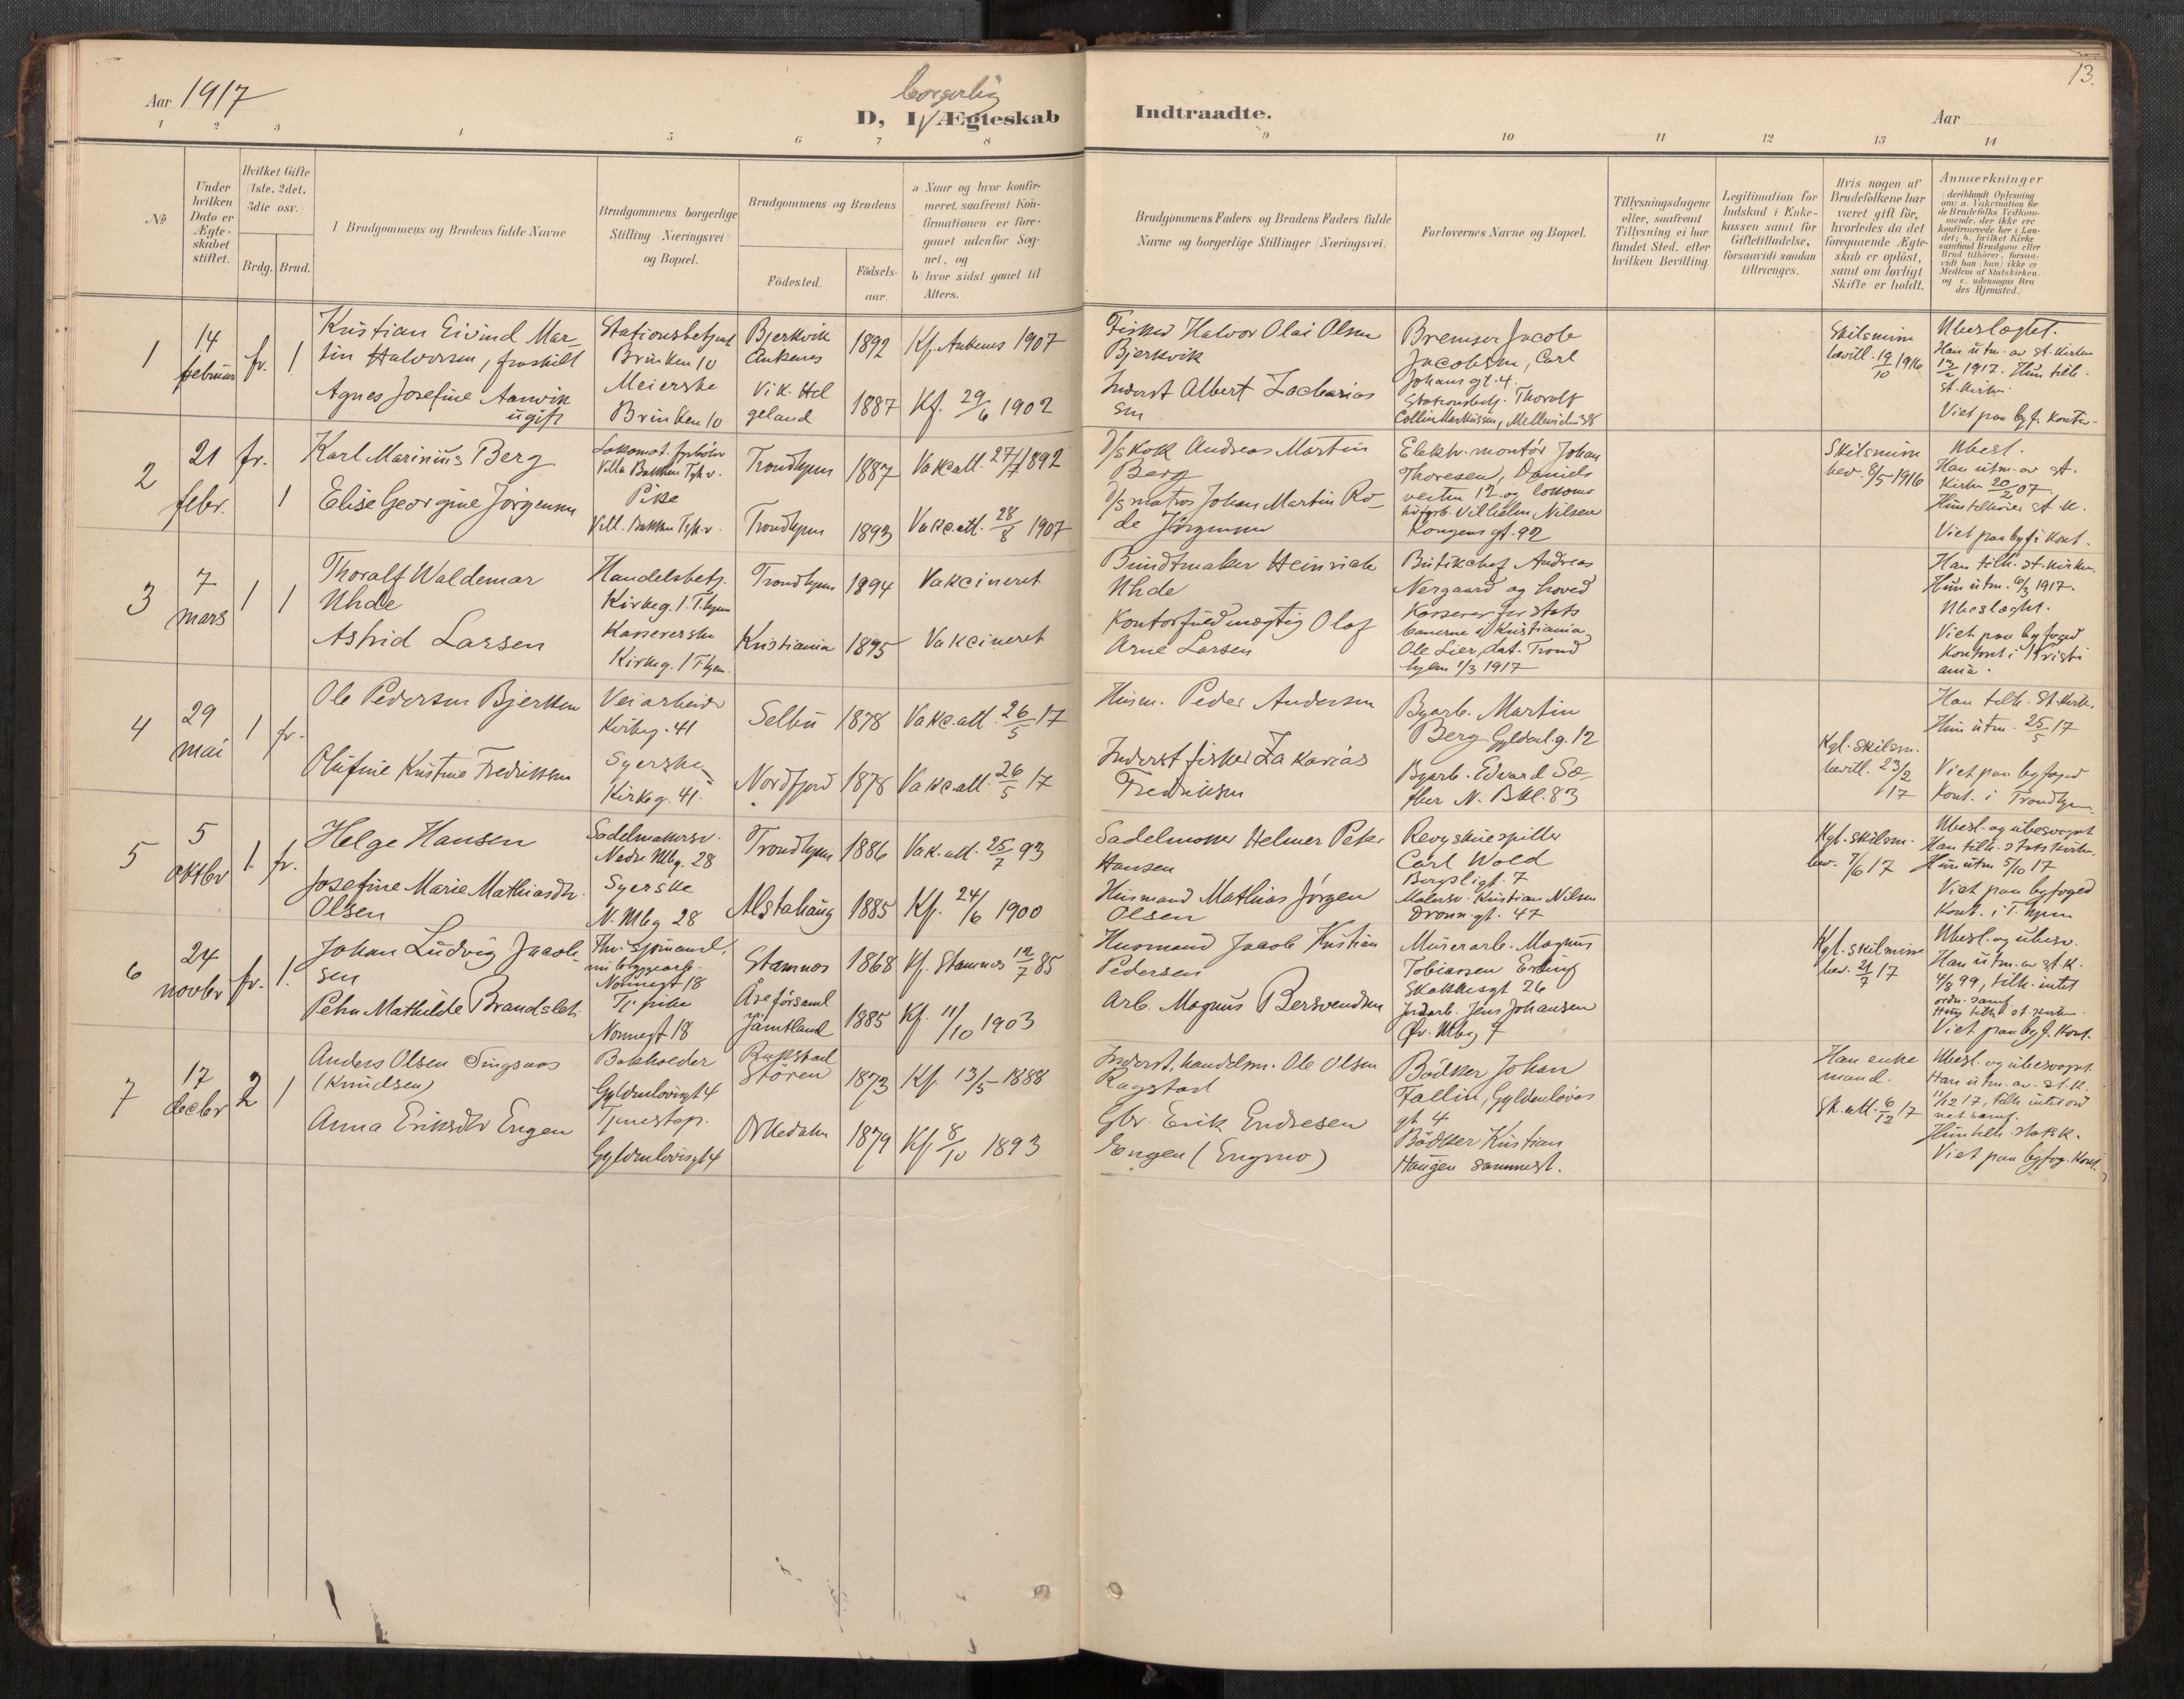 13.
Aar 1917
borgerlig
D, I Ægteskab Indtraadte.
Aar
1 2 3 4 5 6 7 8 9 10 11 12 13 14
No
Under
hvilken
Dato er
Ægte-
skabet
stiftet.
Hvilket Gifte
(1ste. 2det.
3die osv.)
Brdg. Brud.
Brudgommens og Brudens fulde Navne
Brudgommens borgerlige
Stilling (Næringsvei)
og Bopæl.
Brudgommens og Brudens
Födested.
Födsels-
aar.
a) Naar og hvor konfir-
meret, saafremt Kon-
firmationen er fore-
gaaet udenfor Sog-
net, og
b) hvor sidst gaaet til
Alters.
Brudgommens Faders og Brudens Faders fulde
Navne og borgerlige Stillinger (Næringsvei).
Forlovernes Navne og Bopæl.
Tillysningsdagene
eller, saafremt
Tillysning ei har
fundet Sted, efter
hvilken Bevilling.
Legitimation for
Indskud i Enke-
kassen samt for
Giftetilladelse,
forsaavidt saadan
tiltrænges.
Hvis nogen af
Brudefolkene har
været gift för,
hvorledes da det
foregaaende Ægte-
skab er oplöst,
samt om lovligt
Skifte er holdt.
Anmærkninger
(deriblandt Oplysning
om: a. Vakcination for
de Brudefolks Vedkom-
mende, der ikke ere
konfirmerede her i Lan-
det; b. hvilket Kirke-
samfund Brudgom eller
Brud tilhörer, forsaa-
vidt han (hun) ikke er
Medlem af Statskirken,
og c. udensogns Bru-
des Hjemsted.)
1
14
februar
fr. 1
Kristian Eivind Mar-
tin Halvorsen, fraskilt
Agnes Josefine Aanvik
ugift
Stationsbetjent
Brinken 10
Meierske
Brinken 10
Bjerkvik
Ankenes
Vik. Hel
geland
1892
1887
Kf. Ankenes 1907
Kf. 29/6 1902
Fisker Halvor Olai Olsen
Bjerkvik
Inderst Albert Zacharias
sen
Bremser Jacob
Jacobsen, Carl
Johans gt. 4.
Stationsbetj. Thoralf
Skilsmisse
bevill. 19/10 1916
Ubeslægtet.
Han utm. av st. kirken
13/2 1917. Hun tilh.
st. kirke
Viet paa byf. kontor
2
21
febr.
fr.
1
Karl Marinius Berg
Elise Georgine Jörgensen
Lokomot. fyrbøter
Villa Bakken
Pike
Vill. Bakken
Trondhjem
Trondhjem
1887
1893
Vakc att. 27/7 1892
Vakc. att. 28/8 1907
D/s kok Andreas Martin
Berg
D/s matros Johan Martin Ro-
de Jörgensen
Elektr. montör Johan
Thoresen, Daniels
veiten 12 og lokomo
Vilhelm Nilsen
Kongens gt. 92
Skilsmisse
bev. 8/5 1916
Ubesl.
Han utm. av st.
kirken 20/2 07
Hun tilhörer st. k.
Viet paa byf. kont.
3
7
mars
1 1
Thoralf Waldemar
Uhde
Astrid Larsen
Handelsbetj.
Kirkeg. 1. T.hjem
Kassererske
Kirkeg. 1 T.hjem.
Trondhjem
Kristiania
1894
1895
Vakcineret
Vakcineret
Bundtmaker Heinrich
Uhde
Kontorfuldmægtig Olaf
Arne Larsen
Butikchef Andreas
Nergaard og hoved
kasserer for stats
banerne i Kristiania
Ole Lier, dat. Trond
hjem 1/3 1917
Han tilh. st. kirken.
Hun utm. 6/3 1917.
Ubeslægtet.
Viet paa byfoged
kontoret i Kristi
ania.
4
29
mai
1 fr.
Ole Pedersen Bjerkken
Olufine Kristine Fredriksen
Veiarbeider
Kirkeg. 41
Syerske
Kirkeg. 41.
Selbu
Nordfjord
1878
1878
Vakc. att. 26/5 17
Vakc. att. 26/5 17
Husm. Peder Andersen
Inderst fisker Zakarias
Fredriksen
Byarb. Martin
Berg Gyldenl. g. 12
Byarb. Edvard Sæ-
ther N. Bkl. 83
Kgl. skilsm.
bevill. 23/2
17
Han tilh. St. kirke.
Hun utm. 25/5 17
Viet paa byfoged
kont. i Trondhjem
5
5
oktbr
1. fr.
Helge Hansen
Josefine Marie Mathiasdtr.
Olsen
Sadelmakersv.
Nedre Mbg. 28
Syerske
N. Mbg 28
Trondhjem
Alstahaug
1886
1885
Vak. att. 25/7 93
Kf. 24/6 1900
Sadelmaker Helmer Peter
Hansen
Husmand Mathias Jörgen
Olsen
Revyskuespiller
Carl Wold
Bergsligt. 7
Malersv. Kristian Nilsen
Dronn. gt. 47
Kgl. skilsm.
bev. 7/6 17
Ubesl. og ubesvogret
Han tilh. statskirken.
Hun utm 5/10 17
Viet paa byfoged
kont. i T. hjem
6
24
novbr
fr. 1.
Johan Ludvig Jacob-
sen
Petra Mathilde Brandslet
Nonnegt 18
Tj. pike
Nonnegt 18
Stamnes
Åre församl
Jämtland
1868
1885
Kf. Stamnes 12/7 85
Kf. 11/10 1903
Husmand Jacob Kristian
Pedersen
Arb. Magnus Bersvendsen
Murerarb. Magnus
Tobiassen Erding
Skakkesgt 26
Jordarb. Jens Johansen
Öv. Mbg 7
Kgl. skilsmisse
bev. 21/7 17
Ubesl. og ubesv.
Han utm. av st. k.
4/8 99, tilh. intet
ordn. samf.
Hun tilh. st. kirken
Viet paa byf. kont.
7
17
decbr
2 1
Anders Olsen Singsaas
(Knudsen)
Anna Eriksdtr Engen
Bokholder
Gyldenlövesgt 4
Tjenestep.
Gyldenlövesgt 4
Støren
Orkedalen
1873
1879
Kf. 13/5 1888
Kf 8/10 1893
Inderst, handelsm. Ole Olsen
Ragstad
Gbr. Erik Endresen
Engen (Engmo)
Bödker Johan
Fallin, Gyldenlöves
gt. 4
Bödker Kristian
Haugen sammest.
Han enke
mand.
Sk. att. 6/12 17
Ubesl. og ubesvogret.
Han utm. av st. k.
11/12 17, tilh. intet ord
net samf.
Hun tilh. statsk.
Viet paa byfog. kont.